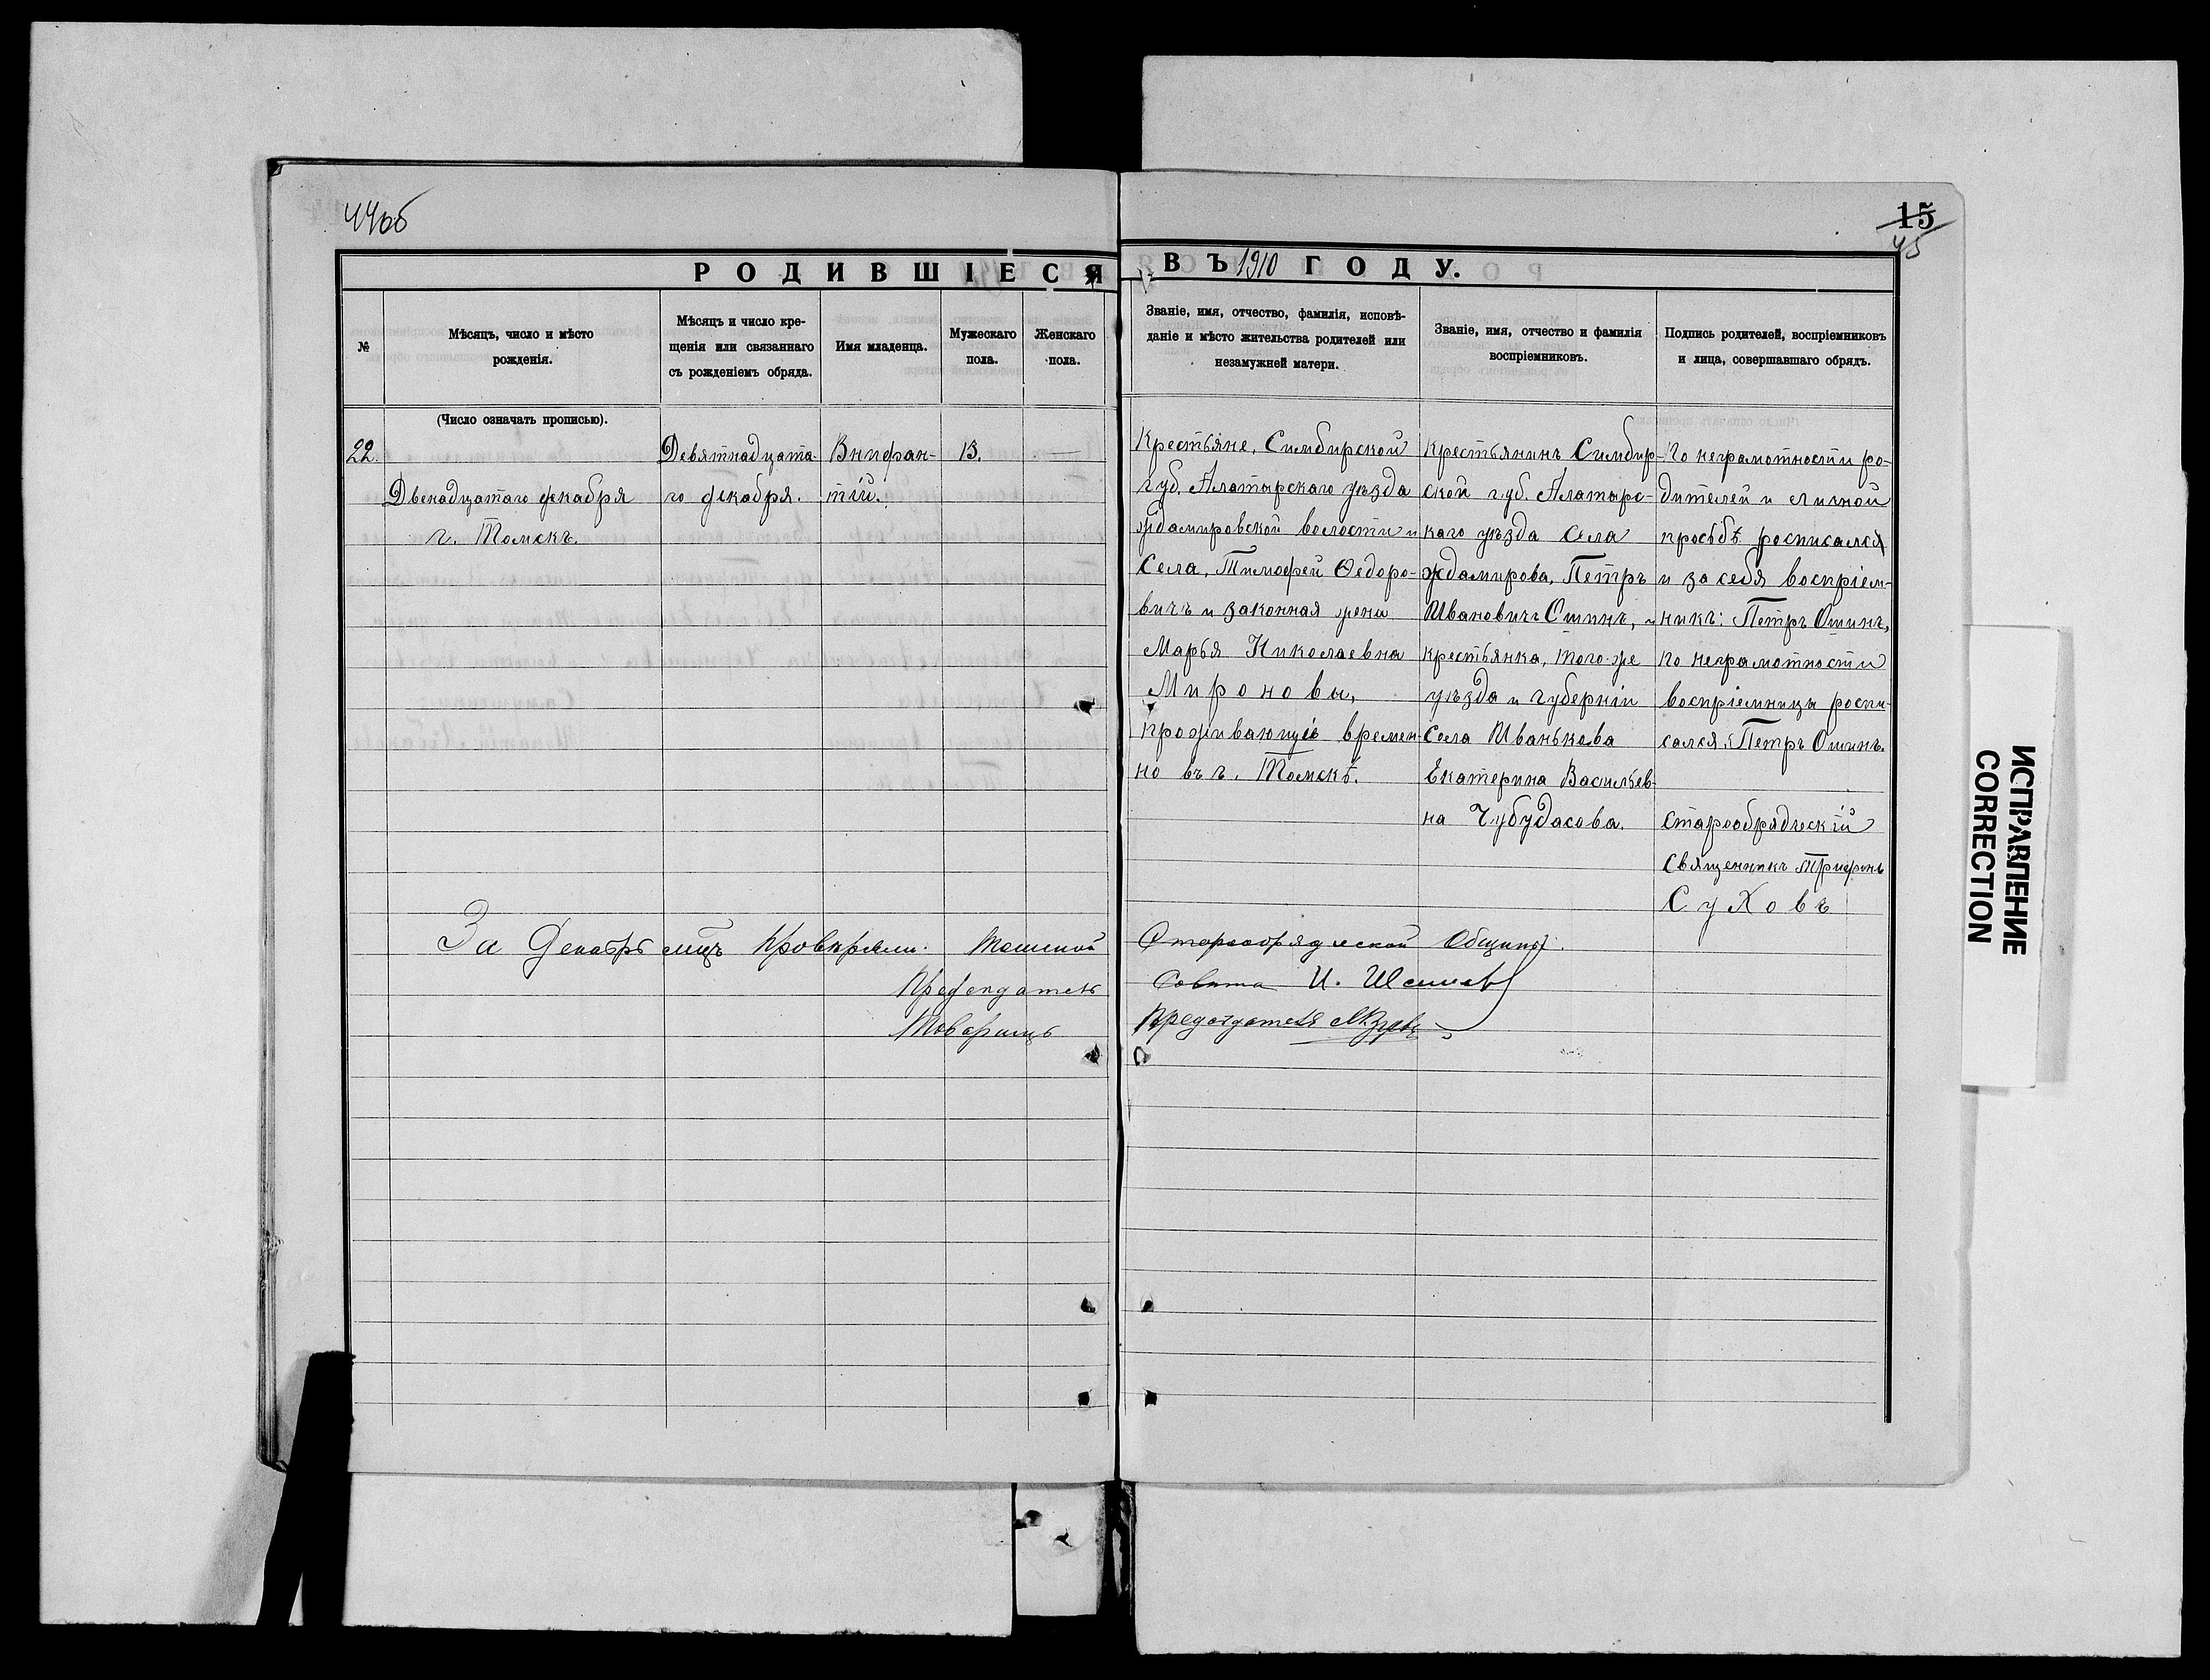 44об
15
45
РОДИВШІЕСЯ ВЪ 1910 ГОДУ.
№
Мѣсяцъ, число и мѣсто
рожденія.
Мѣсяцъ и число кре-
щенія или связаннаго
съ рожденіемъ обряда.
Имя младенца.
Мужескаго
пола.
Женскаго
пола.
Званіе, имя, отчество, фамилія, исповѣ-
даніе и мѣсто жительства родителей или
незамужней матери.
Званіе, имя, отчество и фамилія
воспріемниковъ.
Подпись родителей, воспріемниковъ
и лица, совершавшаго обрядъ.
(Число означать прописью).
22.
Двенадцатаго декабря
г. Томскъ.
Девятнадцата-
го декабря.
Внифан-
тій.
13.
—
Крестьяне, Симбирской
губ. Алатырскаго уѣзда
Ждамировской волости и
Села, Тимофей Ѳедоро-
вичъ и законная жена
Марья Николаевна
Мироновы,
проживающіе времен-
но въ г. Томскѣ.
Крестьянинъ Симбир-
ской губ. Алатырс-
каго уѣзда Села
Ждамирова, Петръ
Ивановичъ Ошинъ, и
крестьянка, того-же
уѣзда и губерніи
Села Иванькова
Екатерина Васильев-
на Чубудасова.
По неграмотности ро-
дителей и личной
просьбѣ росписался
и за себя воспріем-
никъ: Петръ Ошинъ,
по неграмотности
воспріемницы роспи-
сался, Петръ Ошинъ.
Старообрядческій
Священникъ Трифонъ
Суховъ
За Декабрь мцъ провѣряли. Томской Старообрядческой Общины.
Председатель Совѣта И.
Товарищъ председателя
ИСПРАВЛЕНИЕ
CORRECTION